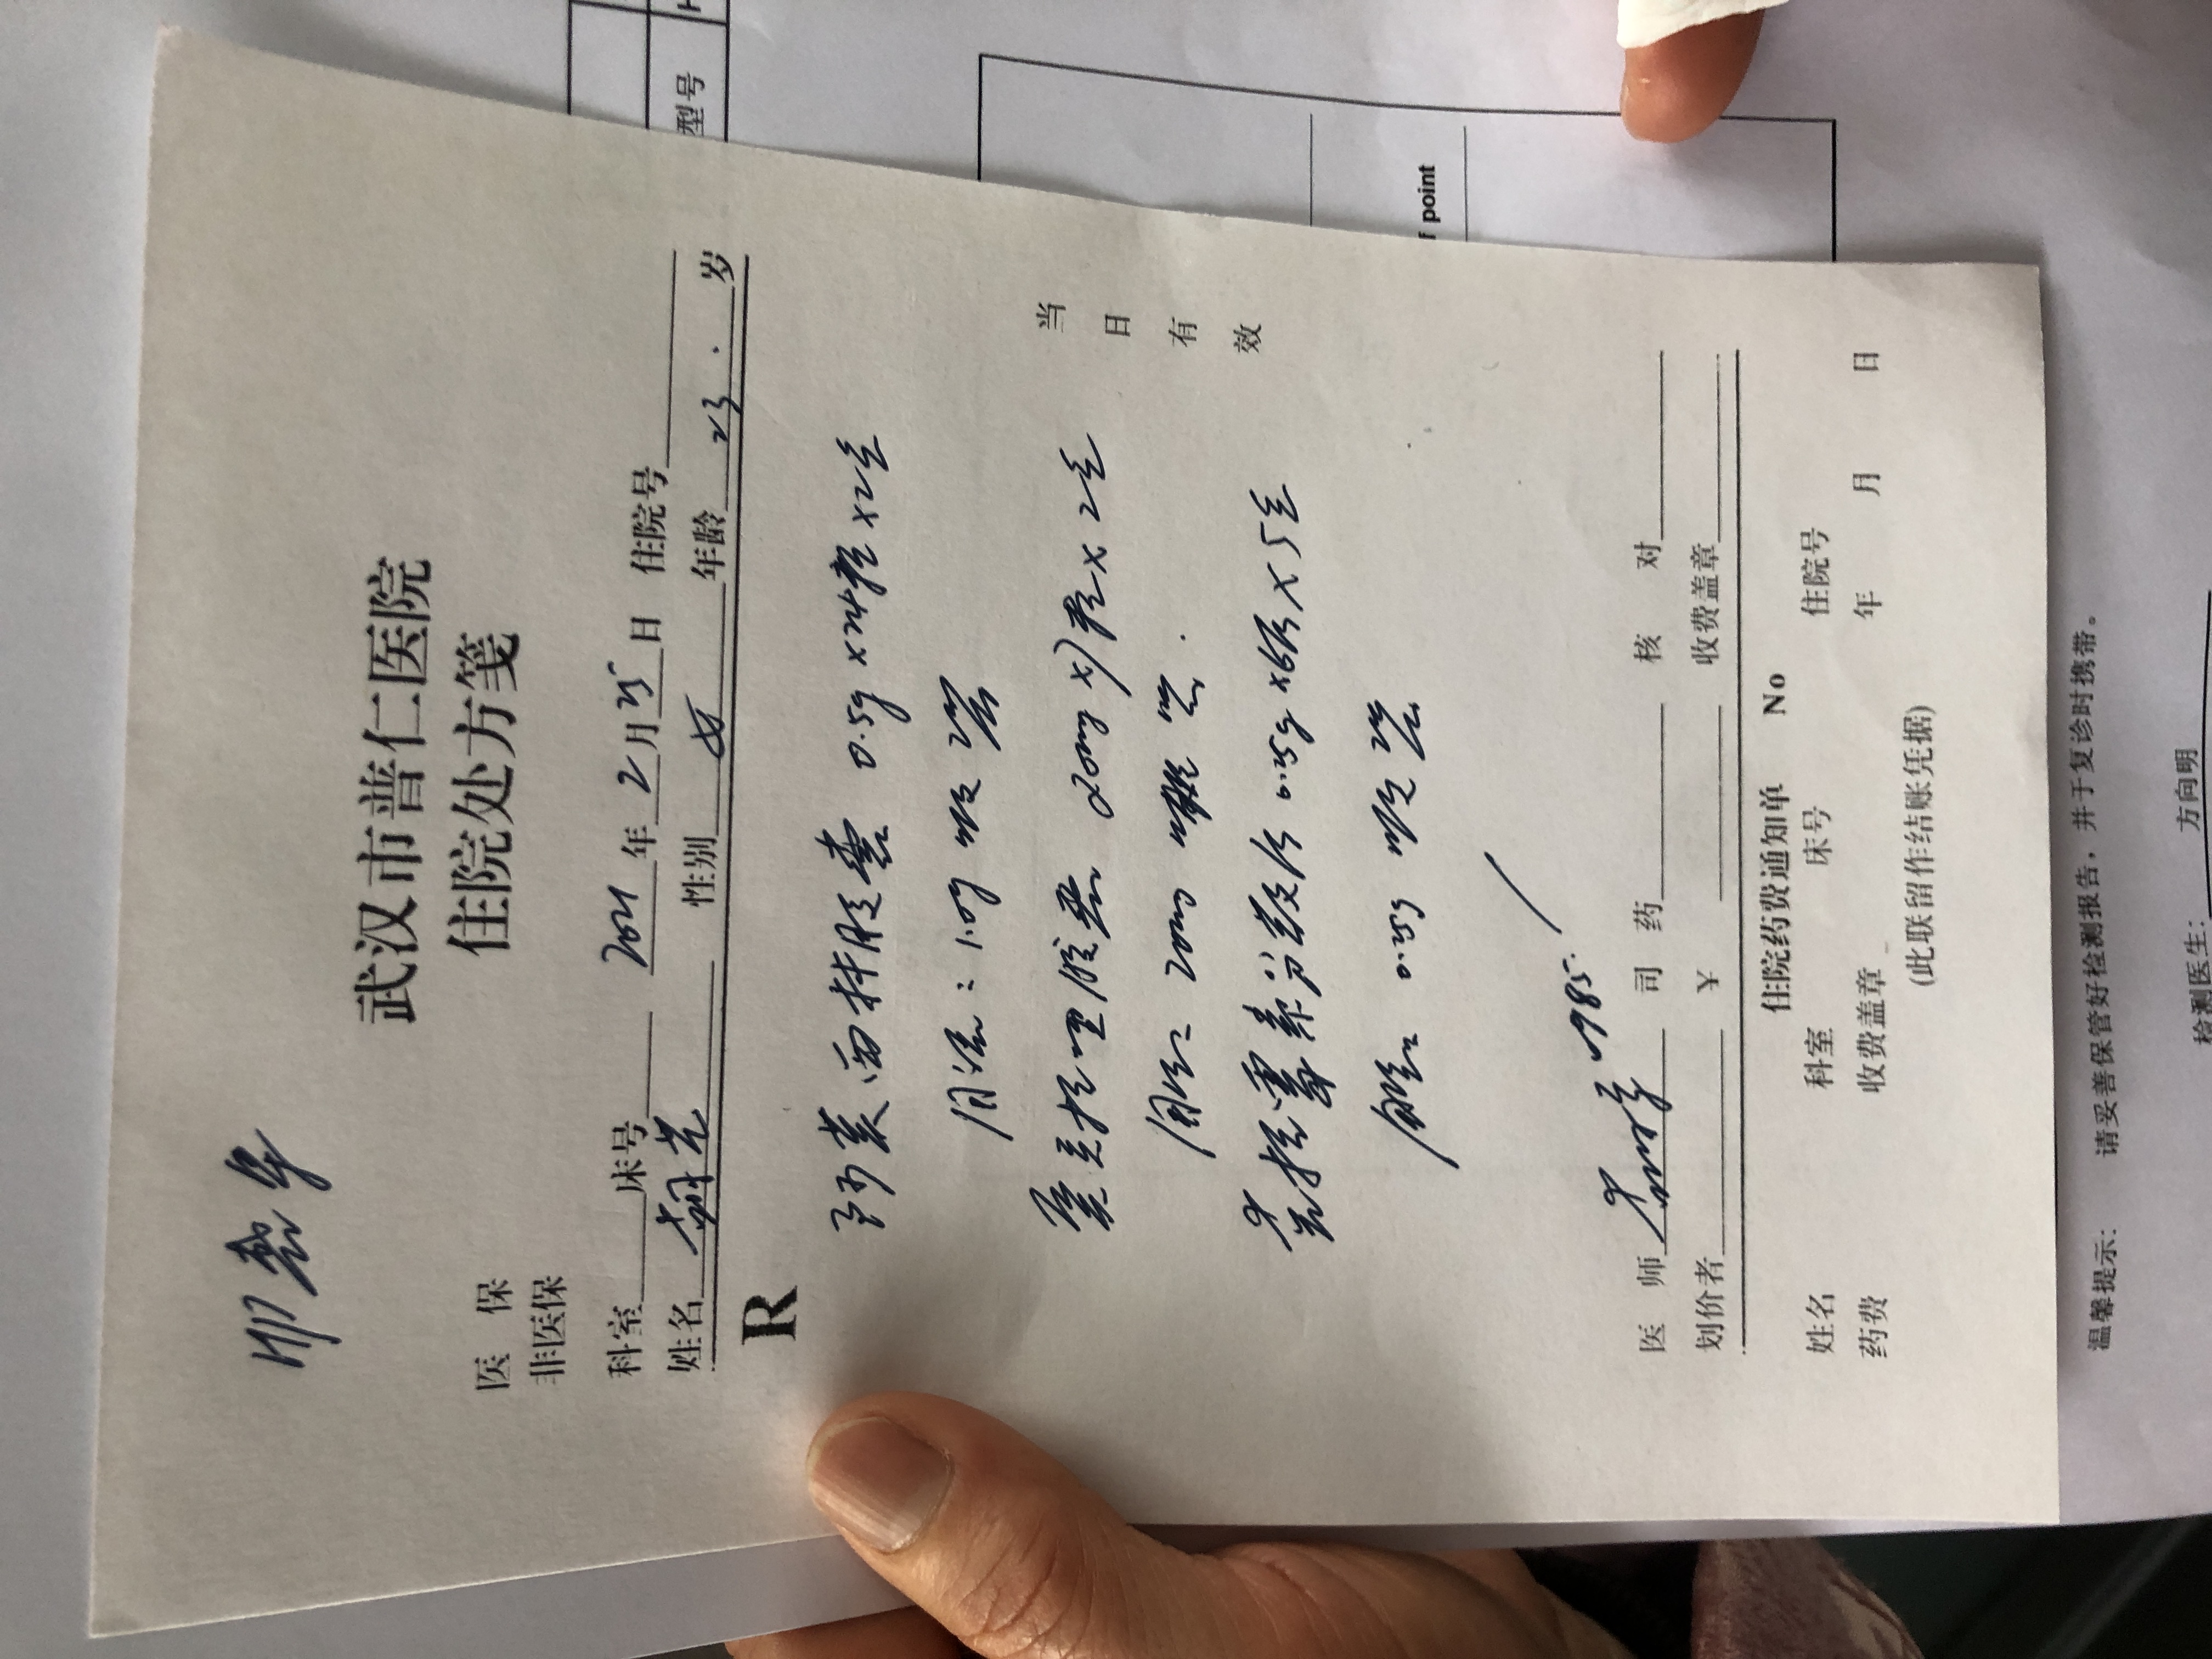 武汉市普仁医院
住院处方笺
医 保
非医保
科室 床号 2021年2月25日 住院号
姓名 胡芳 性别 女 年龄 23 岁
型号 H
R
阿莫西林胶囊 0.5g×24粒×2盒
用法: 1.0g 口服 2次/日
奥美拉唑胶囊 20mg×7粒×2盒
用法: 20mg
克拉霉素分散片 0.25g×6片×5盒
用法: 0.25g 口服 2次/日
当日有效
f point
医 师 司 药 核 对
划价者 ¥ 收费盖章
住院药费通知单 No
姓名 科室 床号 住院号
药费 收费盖章 年 月 日
(此联留作结账凭据)
温馨提示: 请妥善保管好检测报告，并于复诊时携带。
检测医生: 方向明